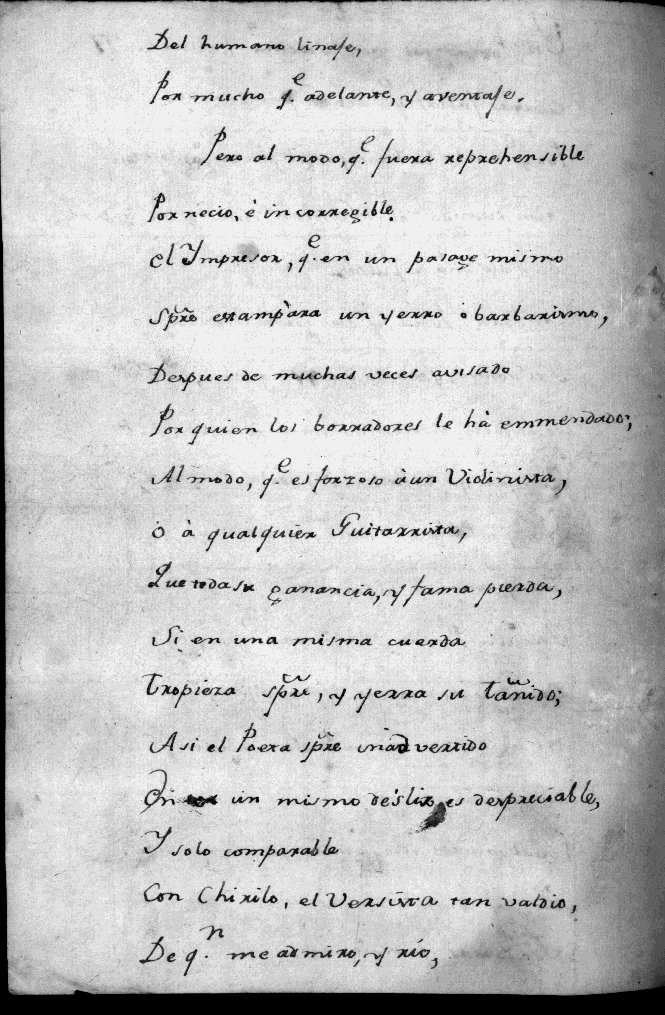 Del humano linaje,
Por mucho q.e adelante, y aventaje.
Pero al modo, q.e fuera reprehensible
Por necio, è incorregible
el Ympresor, q.e en un pasage mismo
Spre estampàra un yerro o barbarismo,
Despues de muchas veces avisado
Por quien los borradores le hà emmendado;
Al modo, q.e es forzoso à un Violinista,
ò à qualquier Guitarrista,
Que toda su ganancia, y fama pierda,
Si en una misma cuerda
Tropieza spre, y yerra su tañido;
Asi el Poeta spre inadvertido
En un mismo desliz es despreciable,
Y solo comparable
Con Chirilo, el Versista tan valdio,
De q.n me admiro, y río,